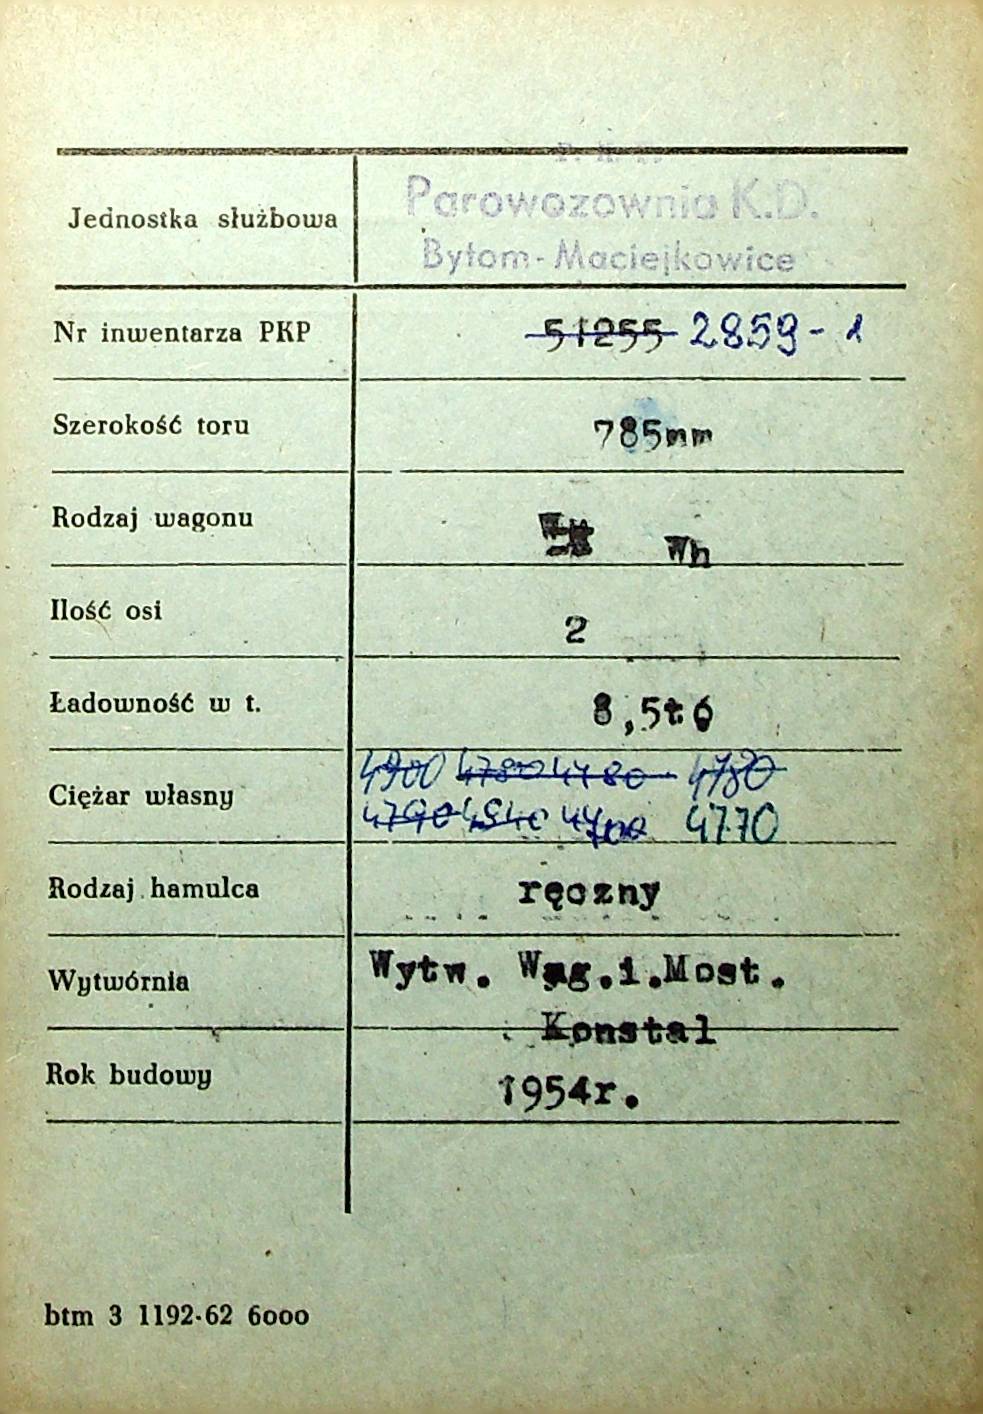 P. K. P.
Parowozownia K.D.
Jednostka służbowa
Bytom-Maciejkowice
Nr inwentarza PKP 51255 2859-1
Szerokość toru 785mm
Rodzaj wagonu Wh
Ilość osi 2
Ładowność w t. 8,5t
4900 4780 4780 4780
Ciężar własny
4790 4840 4770
Rodzaj hamulca ręczny
Wytwórnia Wytw. Wag.i.Most.
Konstal
Rok budowy 1954r.
btm 3 1192-62 6ooo